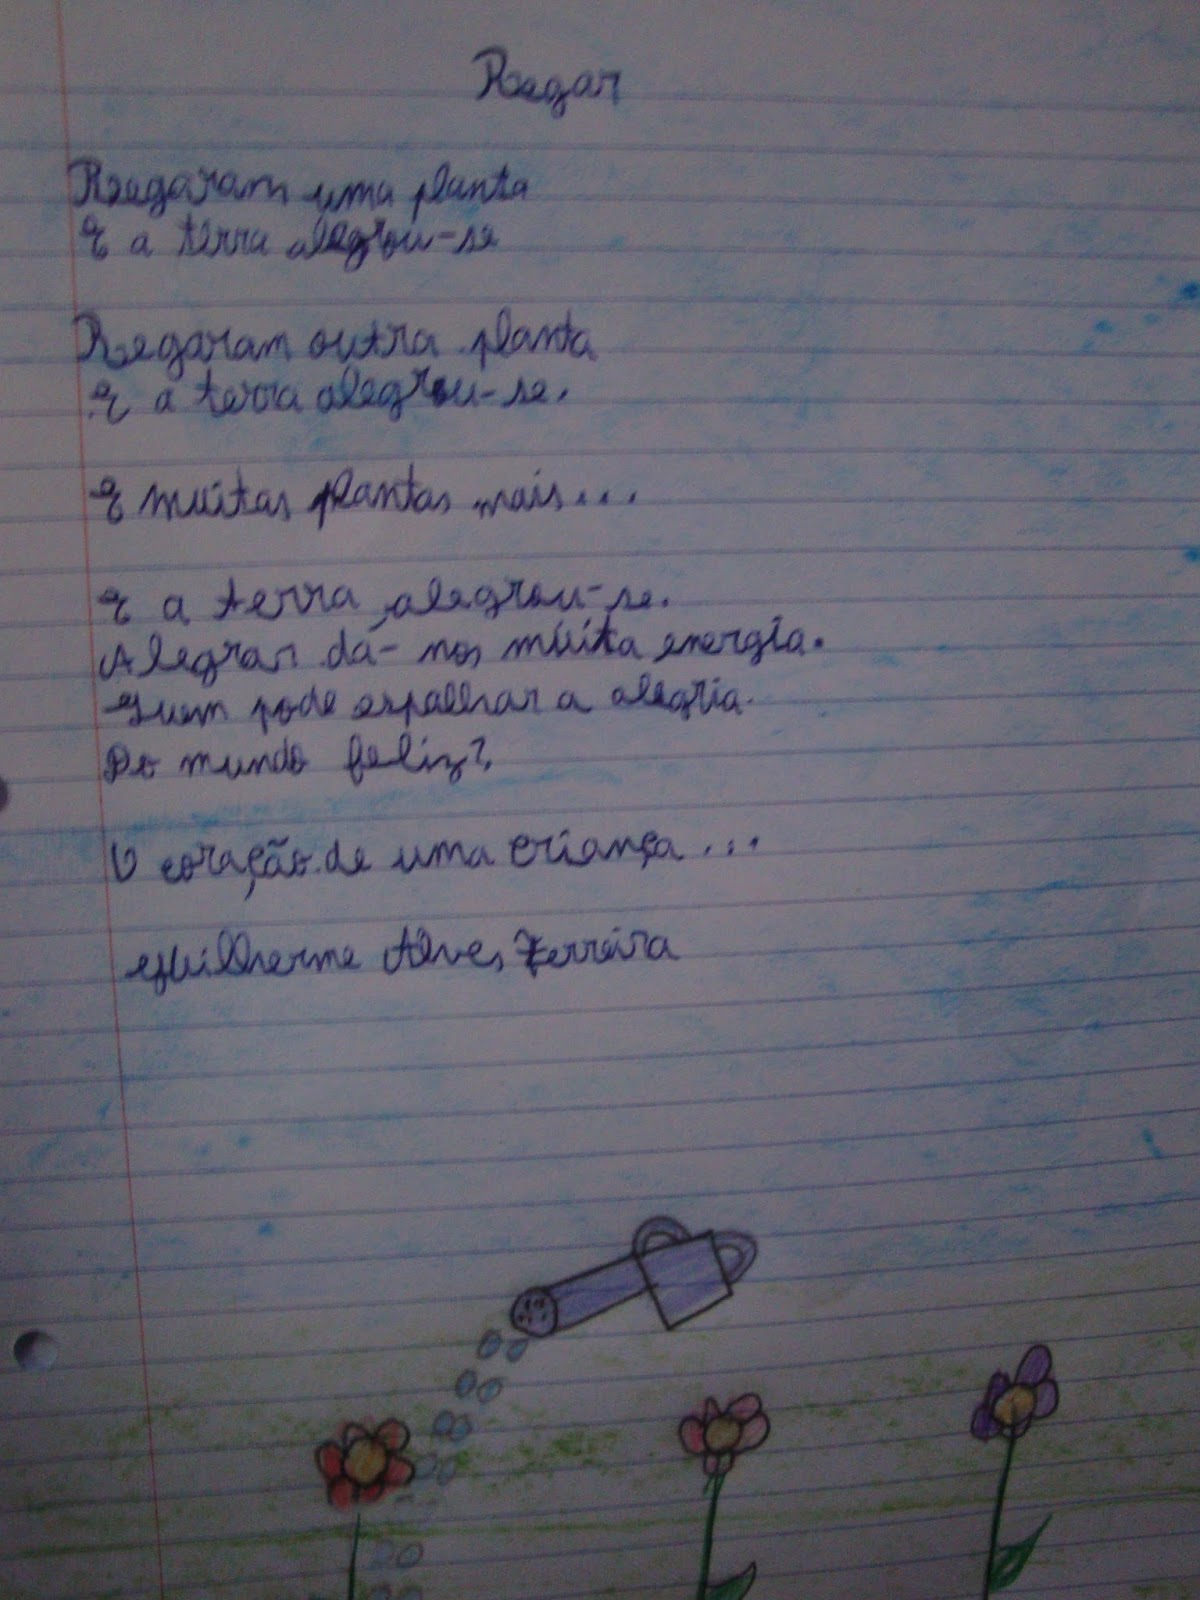 Regar
Regaram uma planta
E a terra alegrou-se
Regaram outra planta
E a terra alegrou-se.
E muitas plantas mais...
E a terra alegrou-se.
Alegrar dá-nos muita energia.
Quem pode espalhar a alegria.
Do mundo feliz?
O coração de uma criança...
Guilherme Alves Ferreira